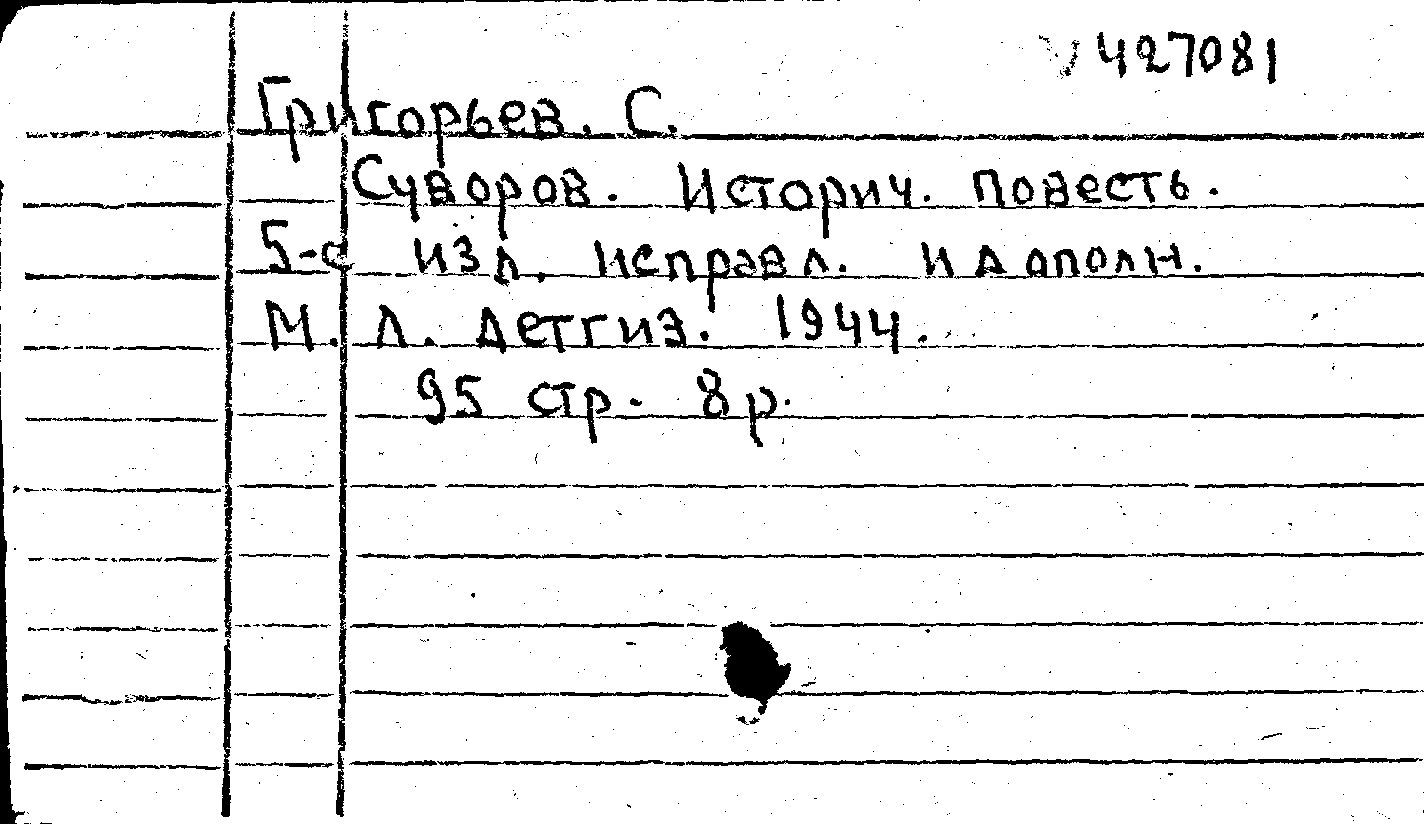 427081
Григорьев. С.
Суворов. Историч. повесть.
5-е изд. исправл. и дополн.
М. Л. Детгиз. 1944.
95 стр. 8р.